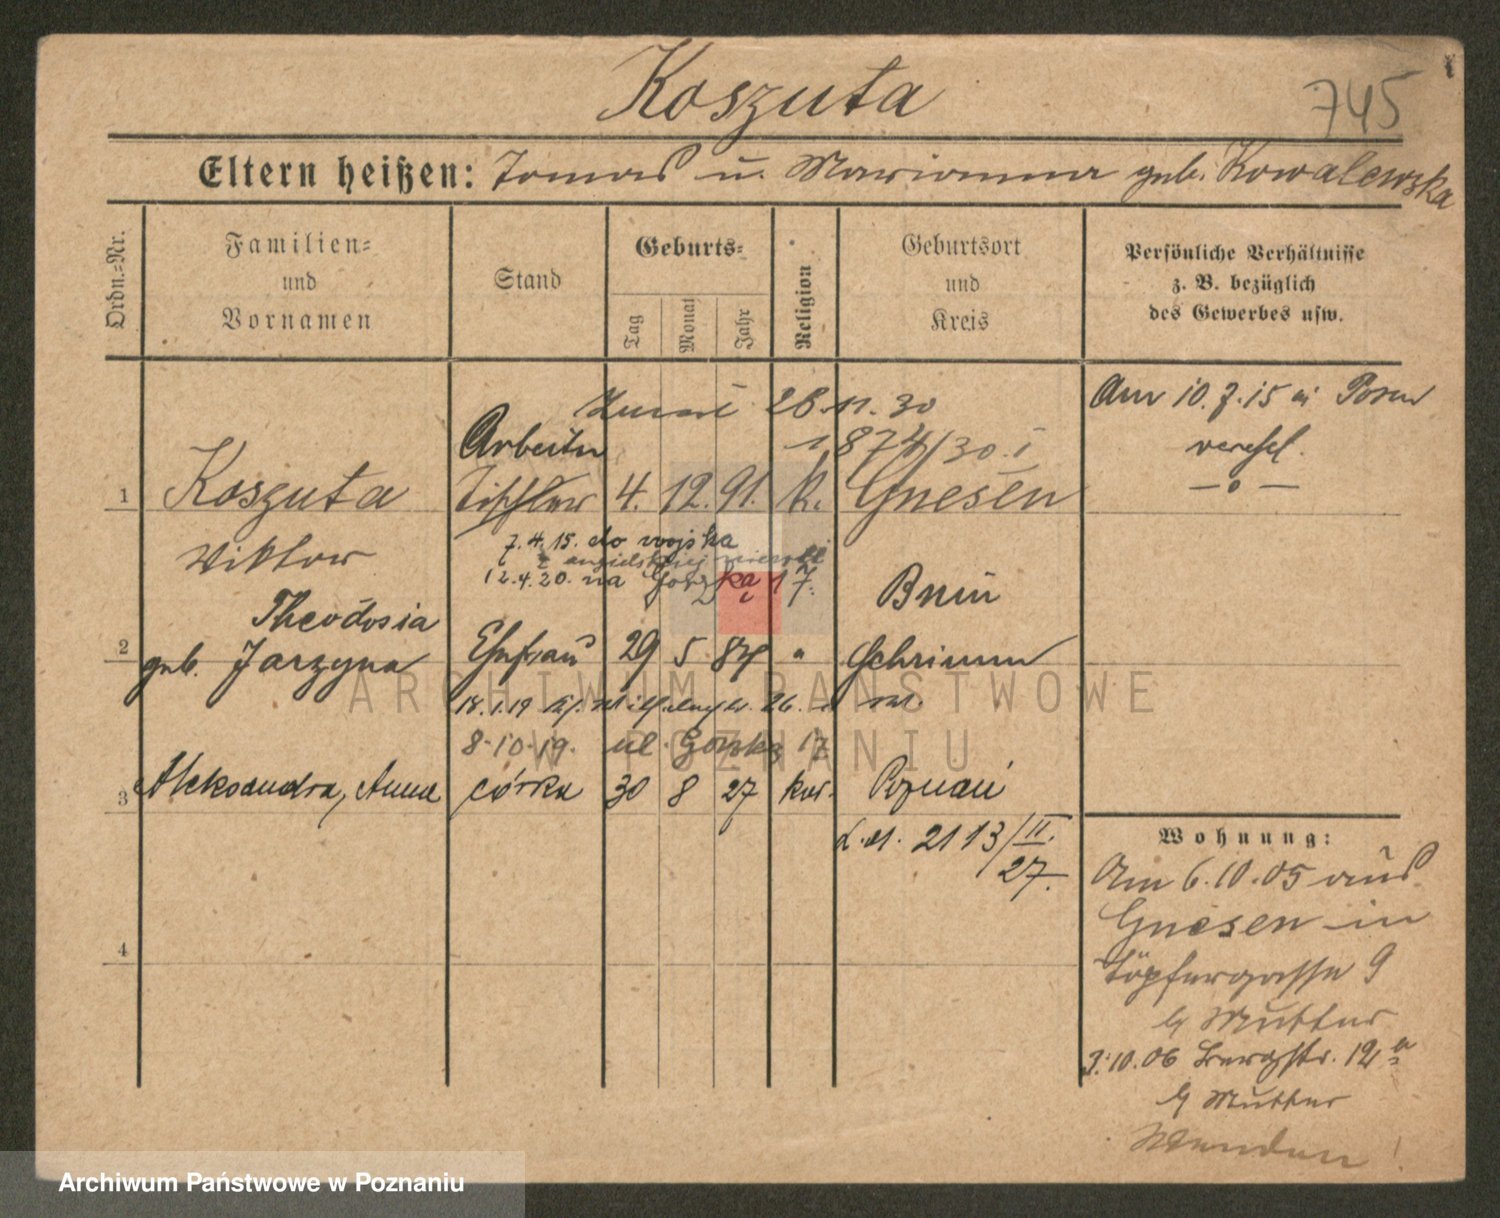 Koszuta
745
Eltern heißen: Tomas u. Marianna geb. Kowalewska
Ordn.=Nr.
Familien= und Vornamen
Stand
Geburts=
Tag
Monat
Jahr
Religion
Geburtsort und Kreis
Persönliche Verhältnisse
z. B. bezüglich
des Gewerbes usw.
28.11.30
874/30.
Arbeiter
1 Koszuta Tischler 4. 12. 91. k. Gnesen
Viktor
7.4.15. do wojska
z angielskiej niewoli
12.4.20. na Górska 17.
Theodosia
geb. Jarzyna
2 Ehefrau 29 5 84 " Bnin
Schrimm
18.1.19
8.10.19. ul. Górska 17
3 Aleksandra, Anna córka 30 8 27 kat. Poznań
2113/II.
27.
4
Am 10.7.15 in Posen
verehel.
—o—
Wohnung:
Am 6.10.05 aus
Gnesen in
Töpfergasse 9
b/ Mutter
3.10.06 Bergstr. 12a
b/ Mutter
Wenden!
ARCHIWUM PAŃSTWOWE
W POZNANIU
Archiwum Państwowe w Poznaniu